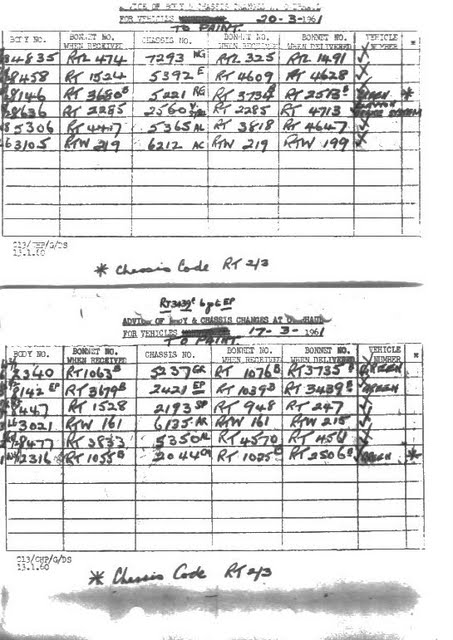 ADVICE OF BODY & CHASSIS CHANGES AT OVERHAUL
FOR VEHICLES 20-3-1961
TO PAINT.
BODY NO. BONNET NO. WHEN RECEIVED CHASSIS NO. BONNET NO. WHEN RECEIVED BONNET NO. WHEN DELIVERED VEHICLE NUMBER *
34835 RTL 474 7293 NG RTL 325 RTL 1491 ✓
8458 RT 1524 5392 E RT 4609 RT 4628 ✓
8146 RT 3680B 5221 RG RT 373 RT 2573B GREEN *
8636 RT 2285 2560 RT 2285 RT 4713
5306 RT 4417 5365 AL RT 3818 RT 4647 ✓
63105 RTW 219 6212 AC RTW 219 RTW 199 ✓
213/CHP/G/DS
13.1.60
* Chassis Code RT 2/3
RT3439E 6pt EP
ADVICE OF BODY & CHASSIS CHANGES AT OVERHAUL
FOR VEHICLES 17-3-1961
TO PAINT.
BODY NO. BONNET NO. WHEN RECEIVED CHASSIS NO. BONNET NO. WHEN RECEIVED BONNET NO. WHEN DELIVERED VEHICLE NUMBER *
2340 RT1063B 5237 GR RT 1076B RT3735B GREEN
8142 EP RT 3679B 2421 EP RT 1039B RT 3439E GREEN
8447 RT 1528 2193 SP RT 948 RT 247 ✓
3021 RTW 161 6135 AR RTW 161 RTW 215 ✓
8477 RT 3833 5350 AL RT 4570 RT 4561 ✓
2316 RT 1055B 2044 RT 1025 RT 2506B GREEN *
213/CHP/G/DS
13.1.60
* Chassis Code RT 2/3